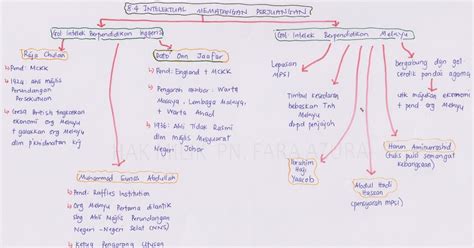 8.4 INTELEKTUAL MEMATANGKAN PERJUANGAN
Gol. Intelek Berpendidikan Inggeris
Gol. Intelek Berpendidikan Melayu
Raja Chulan
Pend: MCKK
1924: Ahli Majlis
Perundangan
Persekutuan
Gesa British tingkatkan
ekonomi org Melayu
+ galakkan org Melayu
dlm p'khidmatan krj
Dato Onn Jaafar
Pend: England + MCKK
Pengarang akhbar: Warta
Malaya, Lembaga Malaya,
+ Warta Ahad
1936: Ahli Tidak Rasmi
dlm Majlis Mesyuarat
Negeri Johor
Muhammad Eunos Abdullah
Pend: Raffles Institution
Org Melayu Pertama dilantik
sbg Ahli Majlis Perundangan
Negeri-Negeri Selat (NNS)
Ketua Pengarang Utusan
Lepasan
MPSI
Timbul kesedaran
bebaskan Tnh
Melayu
drpd penjajah
Ibrahim
Haji
Yaacob
Abdul Hadi
Hassan
(pensyarah MPSI)
Harun Aminurrashid
(tulis puisi semangat
kebangsaan)
bergabung dgn gol
cerdik pandai agama
utk majukan ekonomi
+ pend org Melayu
HAK MILIK PN. FARA AZURA